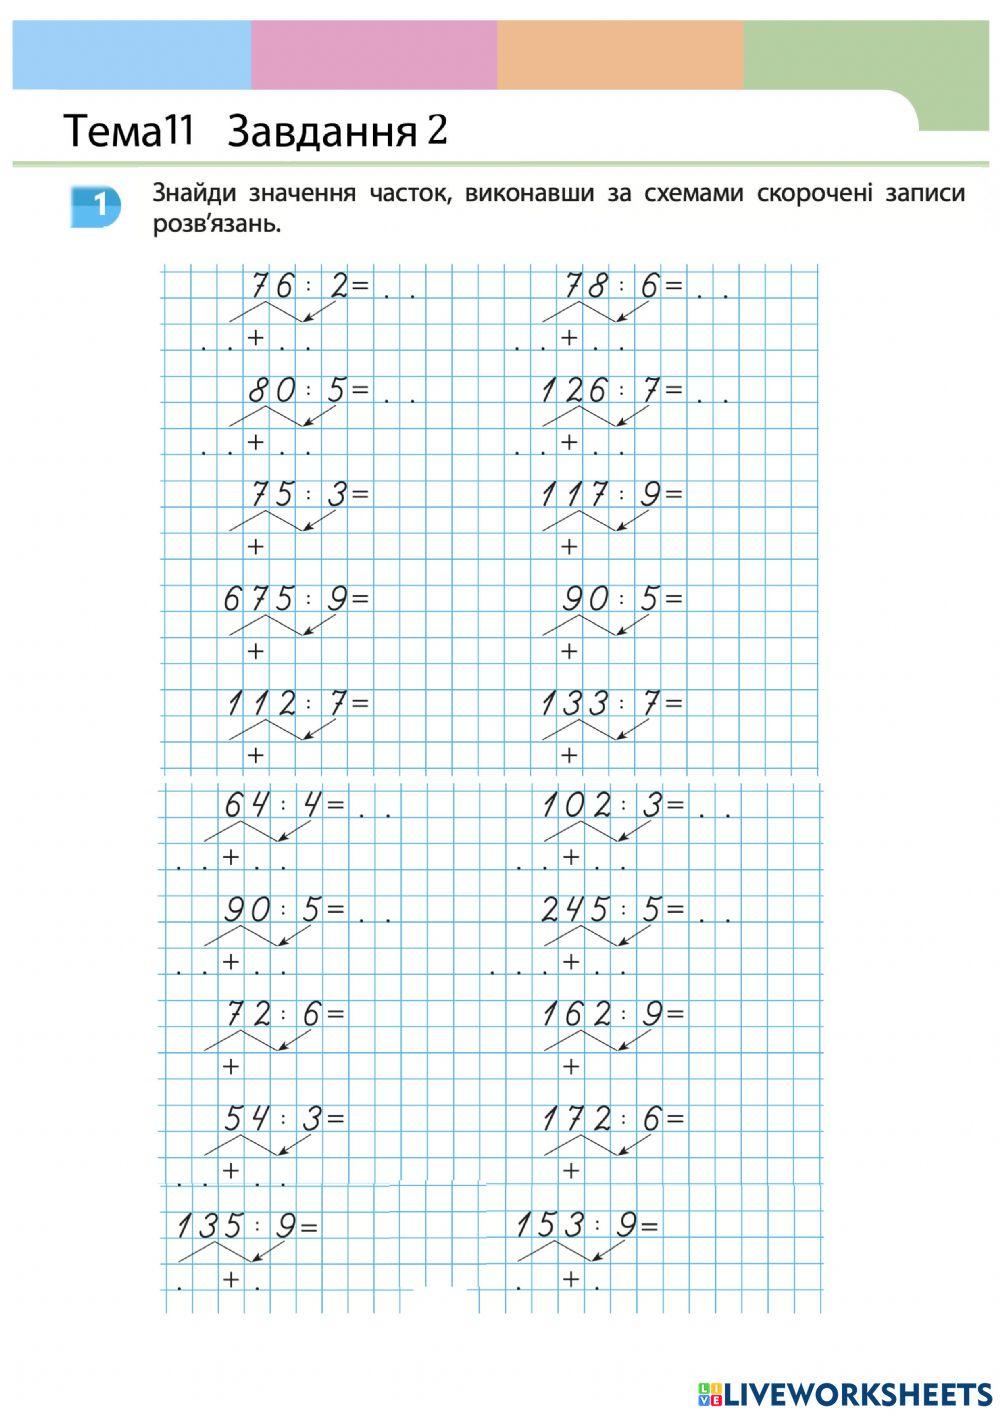 Тема11 Завдання 2
1 Знайди значення часток, виконавши за схемами скорочені записи
розв’язань.
76 : 2 = . . 78 : 6 = . .
. . + . . . . + . .
80 : 5 = . . 126 : 7 = . .
. . + . . . . + . .
75 : 3 = 117 : 9 =
+ +
675 : 9 = 90 : 5 =
+ +
112 : 7 = 133 : 7 =
+ +
64 : 4 = . . 102 : 3 = . .
. . + . . . . + . .
90 : 5 = . . 245 : 5 = . .
. . + . . . . . + . .
72 : 6 = 162 : 9 =
+ +
54 : 3 = 172 : 6 =
. . + . . +
135 : 9 = 153 : 9 =
. + . . + .
LIVE LIVEWORKSHEETS